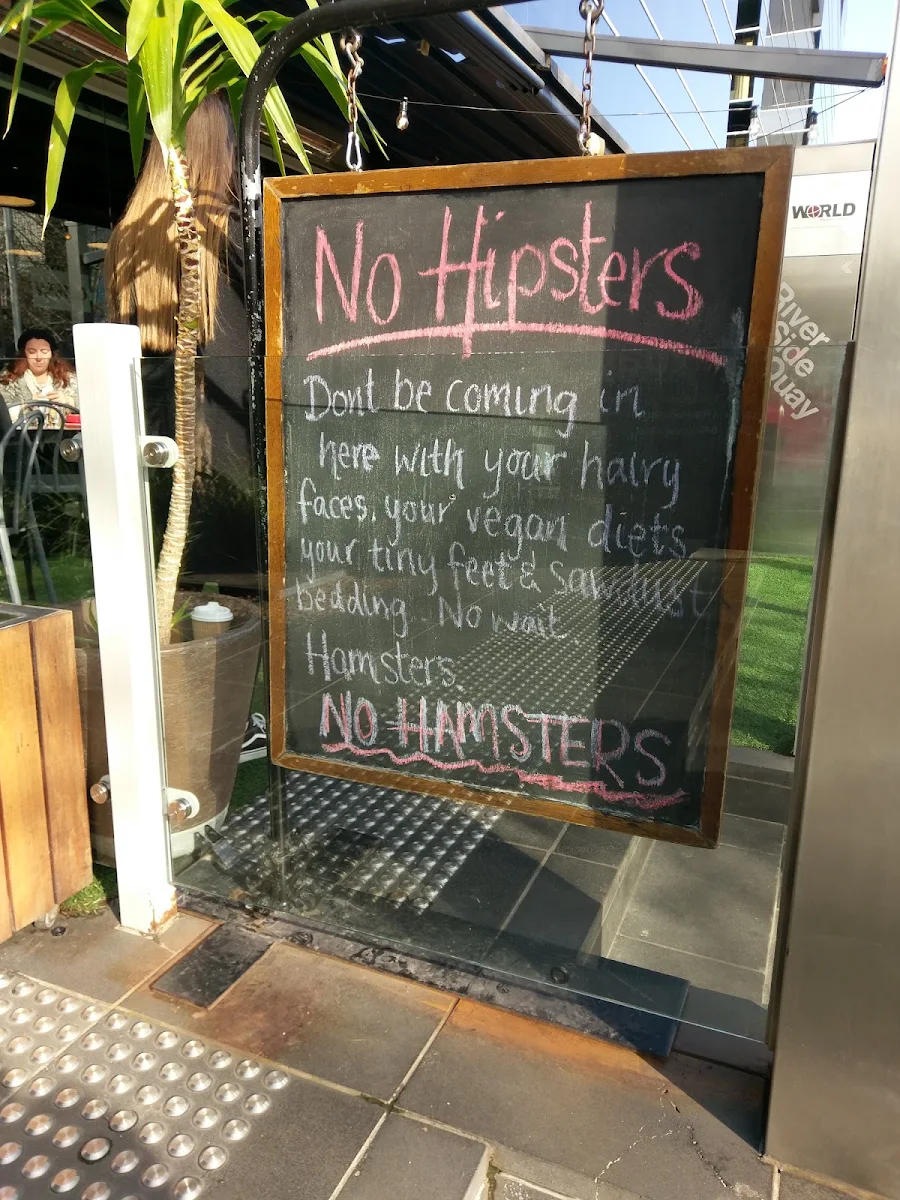 No Hipsters
Dont be coming in
here with your hairy
faces, your vegan diets
your tiny feet & sawdust
bedding. No wait.
Hamsters.
NO HAMSTERS
WORLD
River
Side
Quay